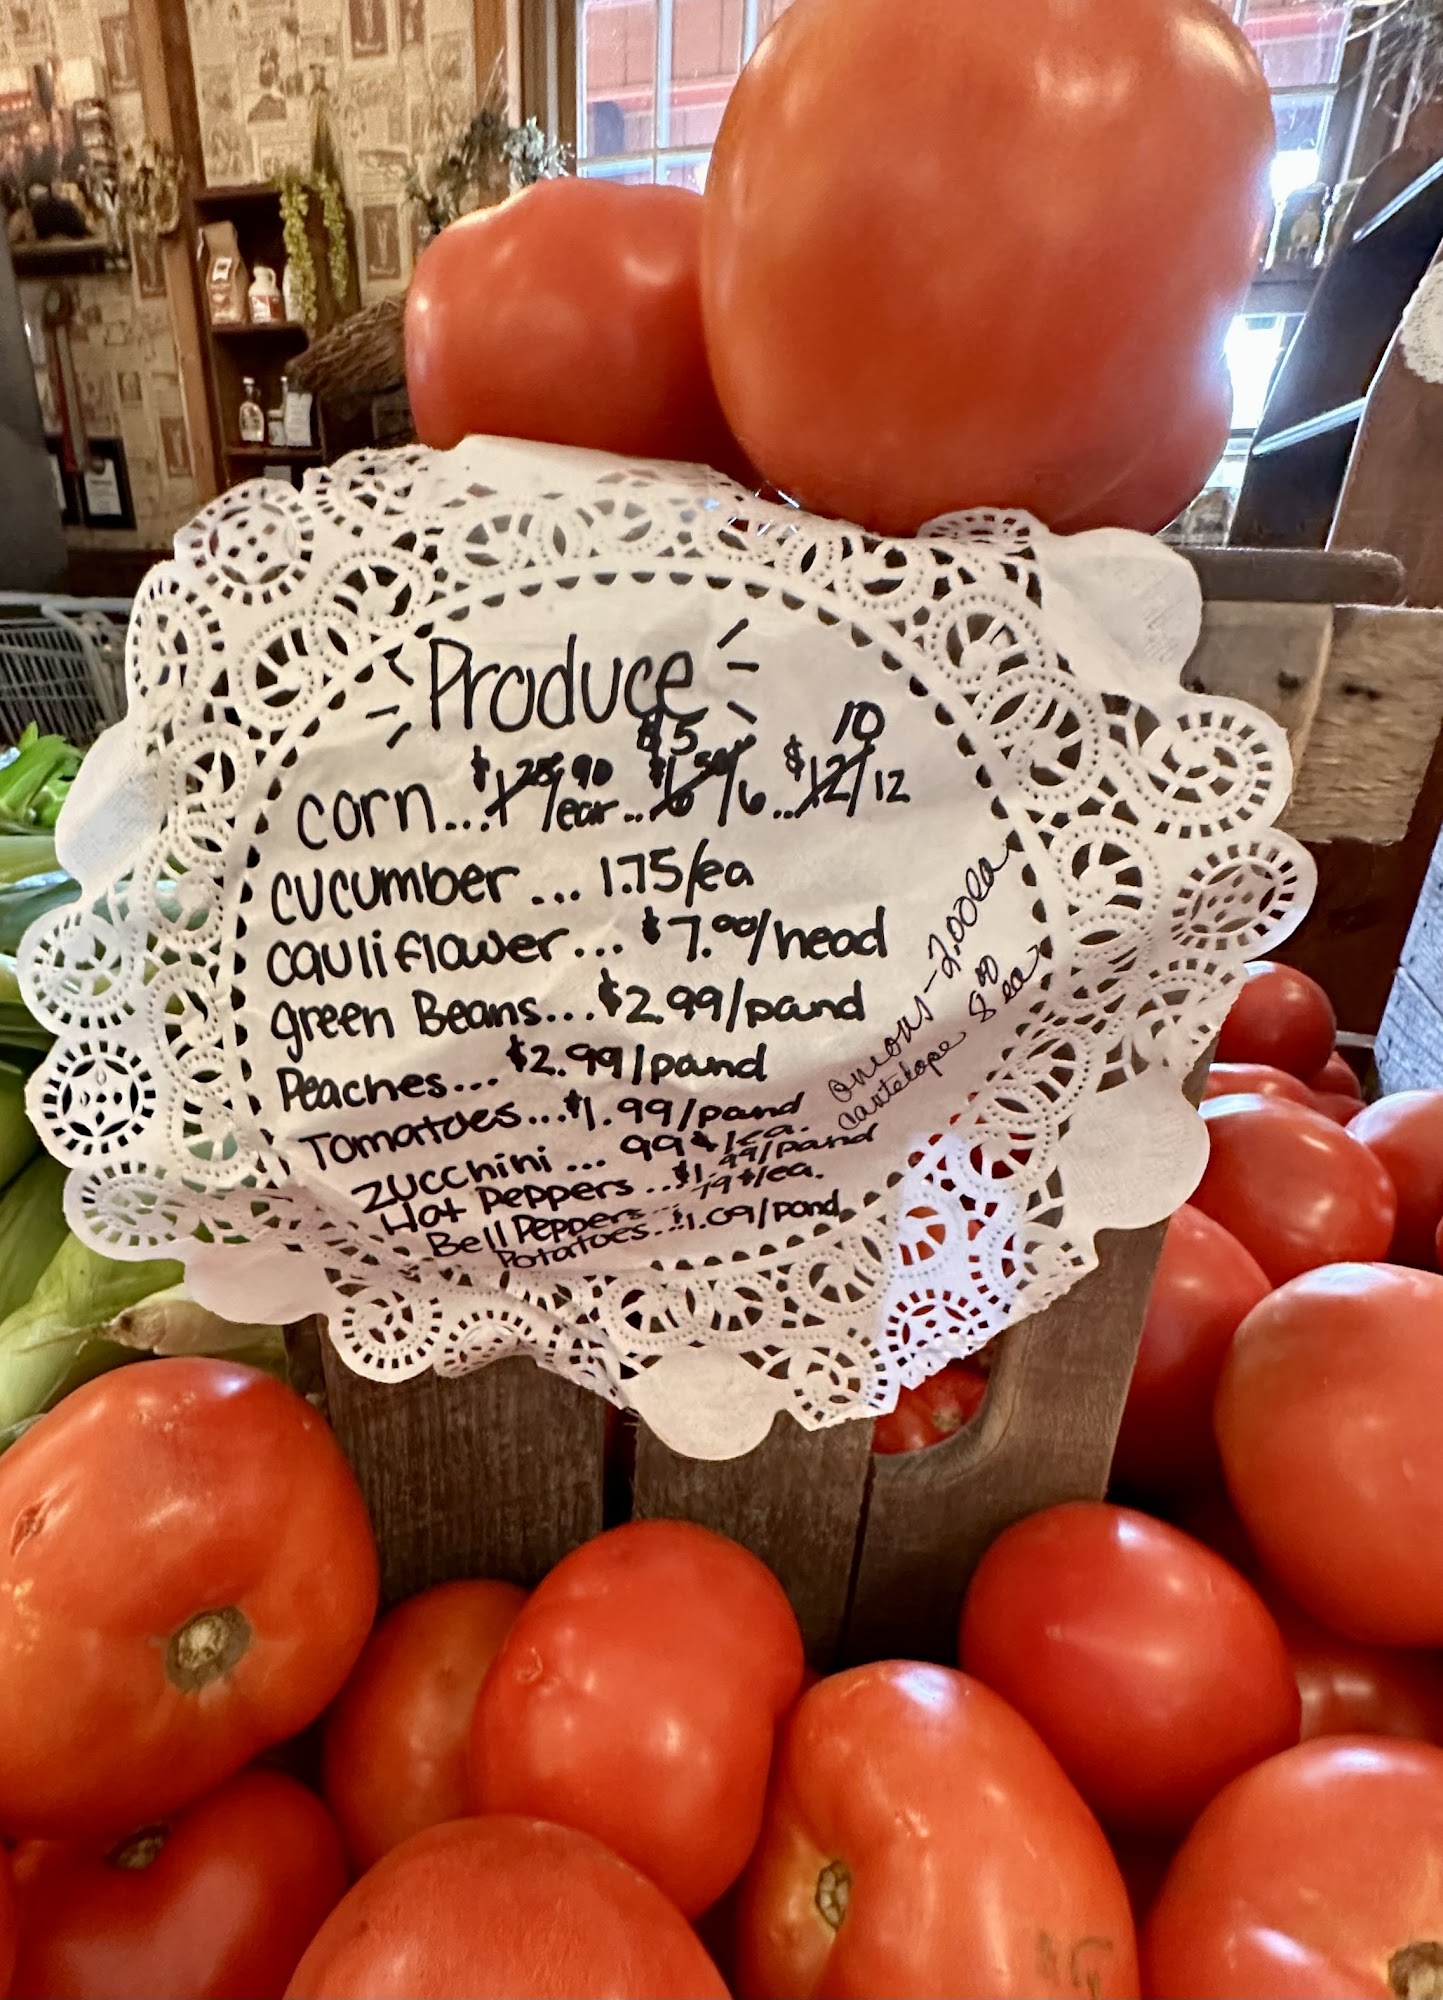 Produce
corn...$1.25/ear 90 ...$6.50/6 $5 ...$12/12 10
cucumber... 1.75/ea
cauliflower... $7.00/head
green Beans...$2.99/pound
Peaches... $2.99/pound
Tomatoes...$1.99/pound
zucchini... 99¢/ea.
Hot Peppers...$1.99/pound
Bell Peppers... 79¢/ea.
Potatoes...$1.09/pound
onions - 2.00ea
cantelope 8.00 ea